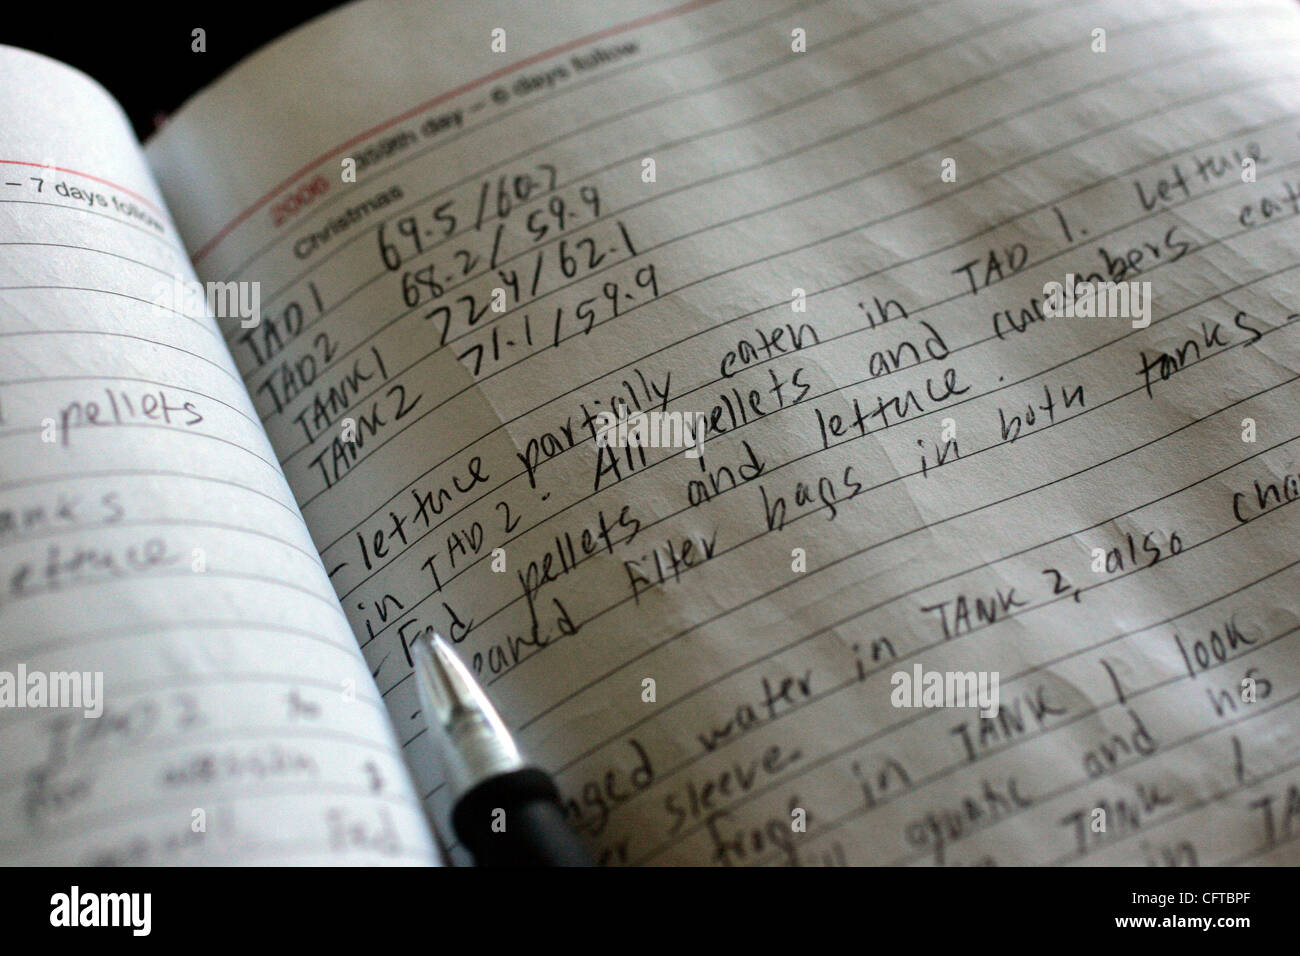 – 7 days follow
pellets
anks
ettuce
TAD 2
for
Fed
2006 359th day – 6 days follow
Christmas
TAD 1 69.5/60.7
TAD 2 68.2/59.9
TANK 1 72.4/62.1
TANK 2 71.1/59.9
- lettuce partially eaten in TAD 1. Lettuce
in TAD 2. All pellets and cucumbers eat
- Fed pellets and lettuce.
eaned filter bags in both tanks -
nged water in TANK 2, also cha
er sleeve.
frogs in TANK 1 look
aquatic and has
TANK 1
in TA
alamy
Image ID: CFTBPF
www.alamy.com